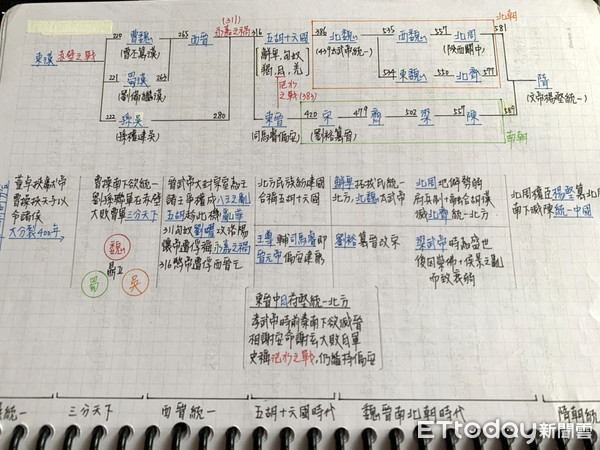 (311)
永嘉之禍
北朝
220 曹魏 265 西晉 316 五胡十六國 386 北魏 535 西魏 557 北周 581
(曹丕篡漢)
鮮卑,匈奴
羯,氐,羌
(439太武帝統一)
(陝西關中)
東漢 赤壁之戰
221 蜀漢 263
534 東魏 550 北齊 577
隋
(文帝楊堅統一)
劉備繼漢
淝水之戰(383)
222 孫吳 280
東晉 420 宋 479 齊 502 梁 557 陳 589
孫權建吳
司馬睿偏安
(劉裕篡晉)
南朝
董卓挾獻帝
曹操挾天子以
令諸侯
大分裂400年
曹操南下欲統一
劉孫聯軍在赤壁
大敗曹軍三分天下
魏
鼎立
蜀
吳
晉武帝大封宗室為王
諸王爭權成八王之亂
五胡趁此機亂華
311匈奴劉曜攻洛陽
懷帝遭俘稱永嘉之禍
316愍帝遭俘西晉亡
北方民族紛建國
台稱五胡十六國
王導輔司馬睿即
晉元帝偏安建康
東晉中期苻堅統一北方
孝武帝時前秦南下欲滅晉
相謝安命謝玄大敗白軍
史稱淝水之戰,仍維持偏安
鮮卑拓拔氏統一
北方,北魏太武帝
劉裕篡晉改宋
北周地俯勢弱
府兵制,每結胡漢
滅北齊統一北方
梁武帝時為盛世
後因崇佛,侯景之亂
而致衰弱
北周權臣楊堅篡北
南下滅陳統一中國
統一
三分天下
西晉統一
五胡十六國時代
魏晉南北朝時代
隋朝統
ETtoday新聞雲